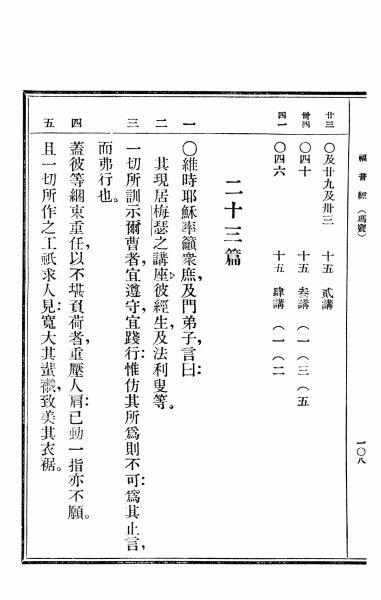 福音經 (瑪竇)
一〇八
廿三 〇及廿九及卅三 十五 貳講
卅四 〇四十 十五 叁講 (一(三(五
四一 〇四六 十五 肆講 (一(二
二十三篇
一 〇維時耶穌率籲衆庶,及門弟子言曰:
二 其現居梅瑟之講座,彼經生及法利叟等。
三 一切所訓示爾曹者,宜遵守,宜踐行;惟仿其所爲則不可:爲其止言,
而弗行也。
四 蓋彼等綑束重任,以不堪負荷者,重壓人肩:已動一指亦不願。
五 且一切所作之工,祇求人見:寬大其,致美其衣裾。